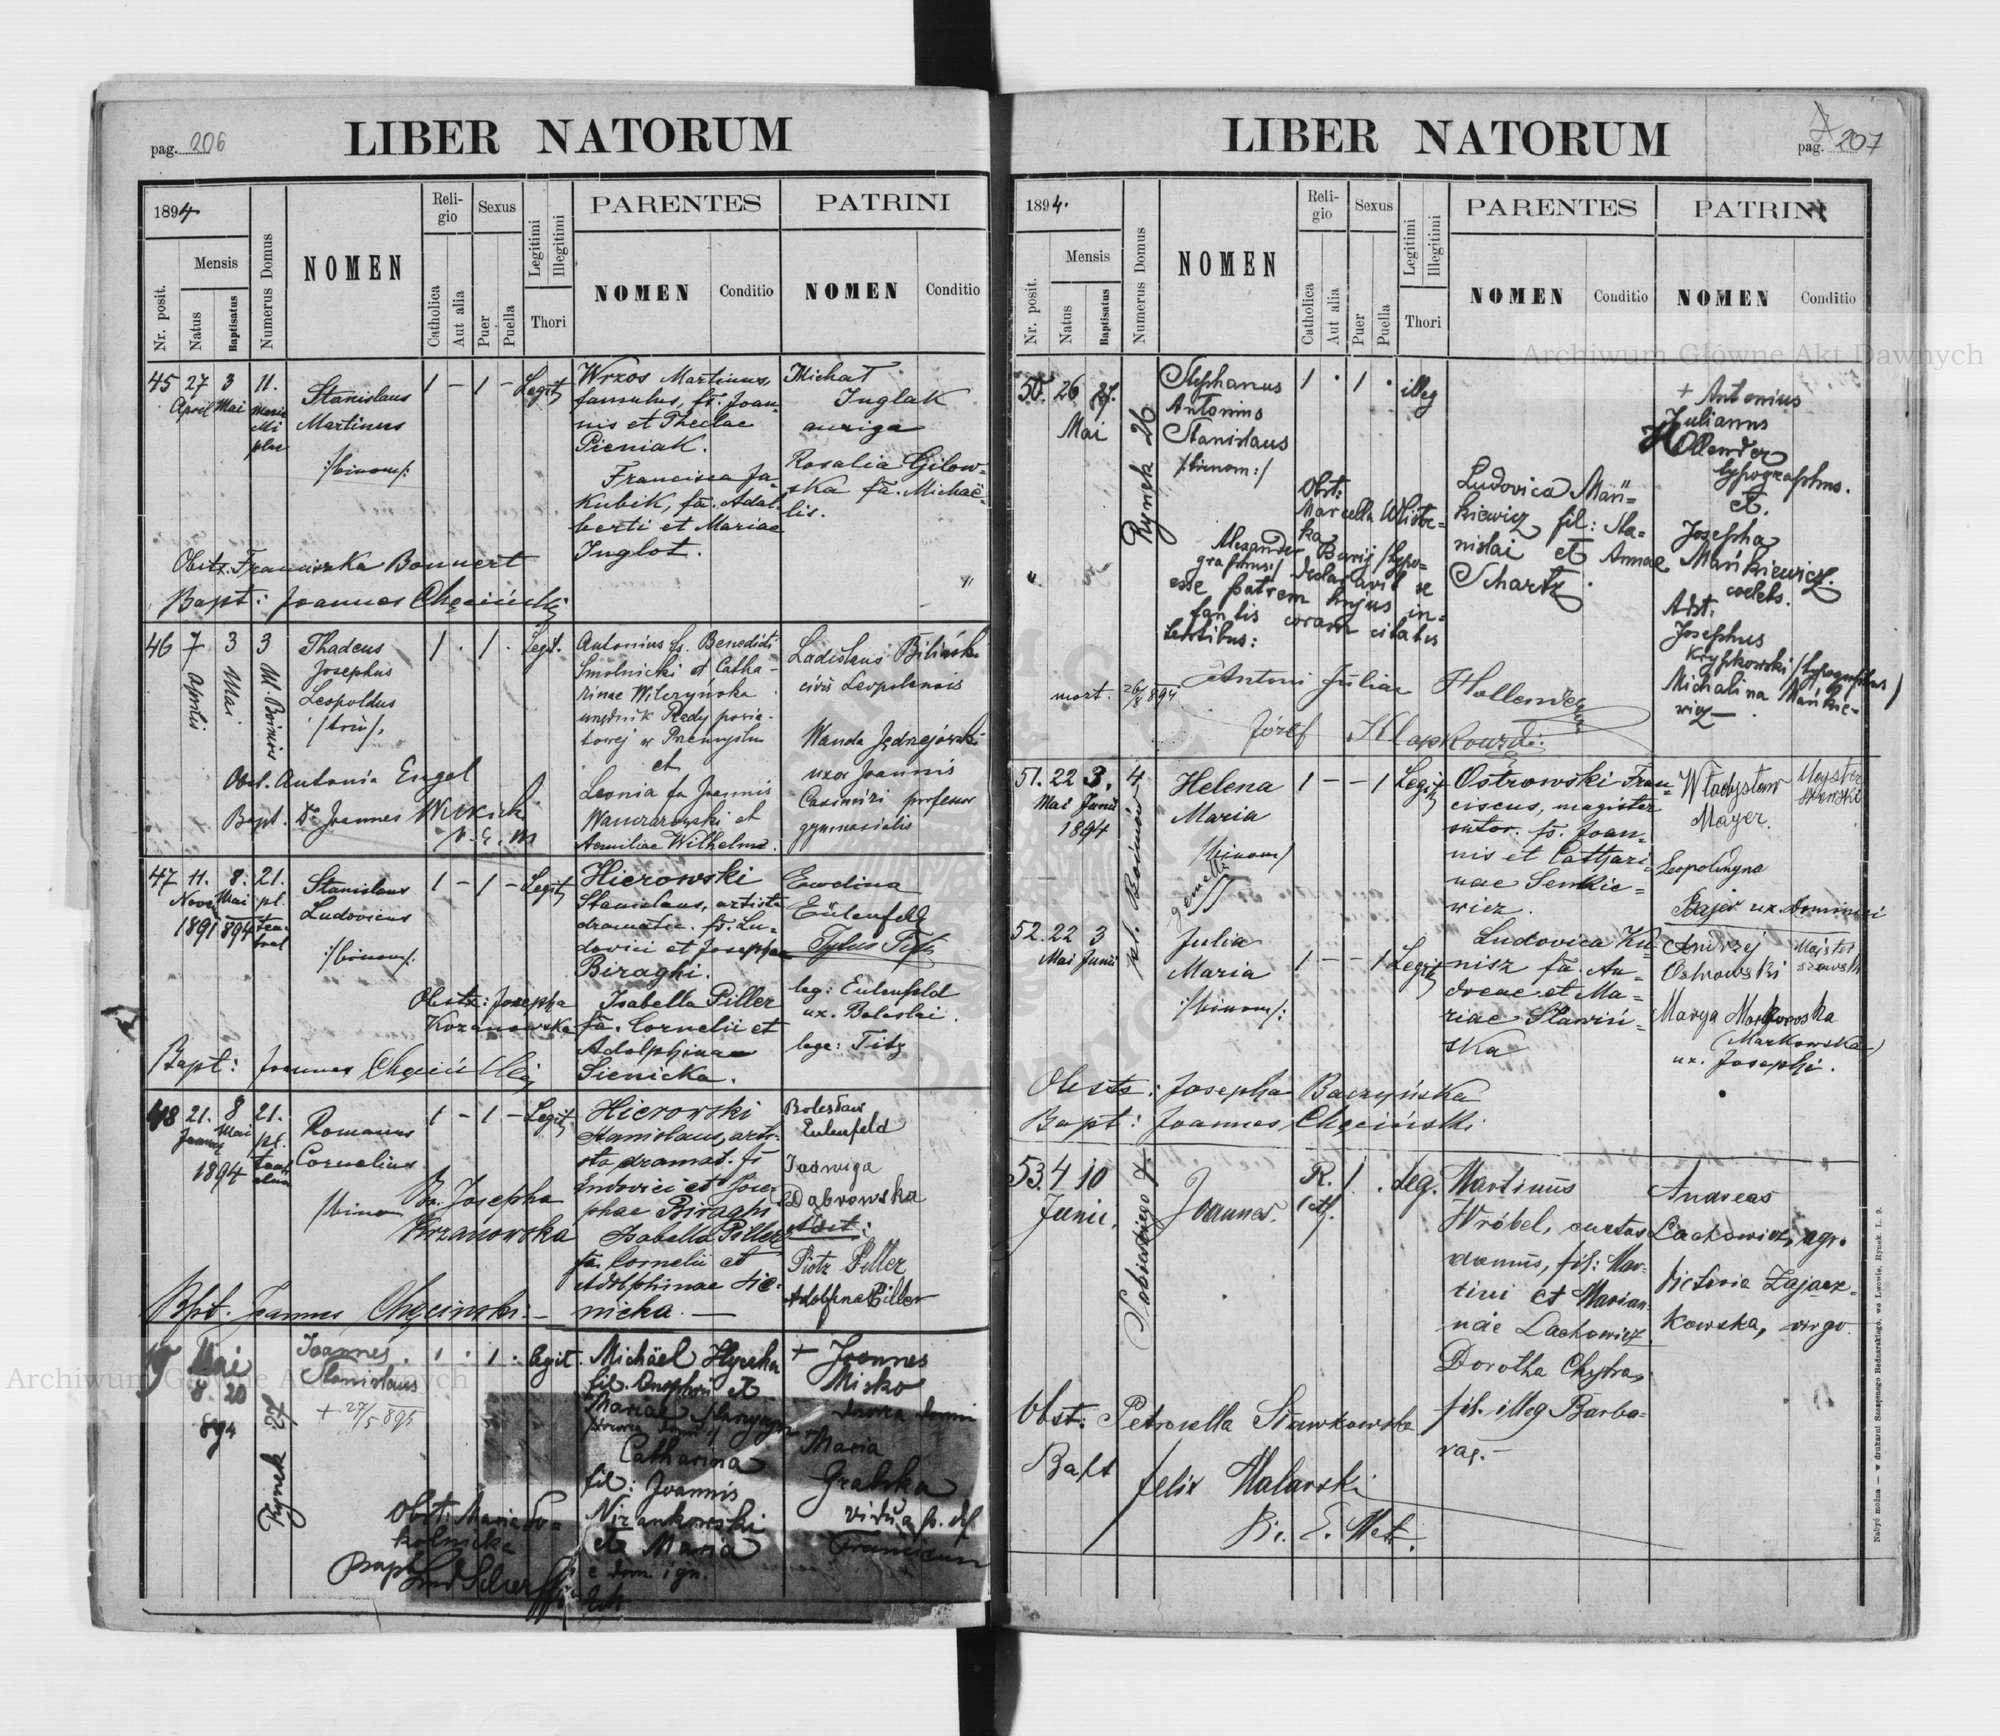 pag. 206
LIBER NATORUM
1894
Mensis
Nr. posit.
Natus
Baptisatus
Numerus Domus
NOMEN
Reli-
gio
Catholica
Aut alia
Sexus
Puer
Puella
Legitimi
Illegitimi
Thori
PARENTES
NOMEN
Conditio
PATRINI
NOMEN
Conditio
45 27 3 11.
April Mai
Stanislaus
Martinus
/:binom:/
1 – 1 – Legit
Wrzos Martinus,
famulus, fs. Joan-
nis et Theclae
Pieniak.
Francisca Ja-
kubik, fa. Adal-
berti et Mariae
Inglot.
Michał
Inglak
auriga
Rosalia Gilow-
ska fa. Michaë-
lis.
Obstz. Franciszka Bonnert
Bapt: Joannes Chęciński
46 7 3 3
Aprilis Mai Pl. Boimów
Thadeus
Josephus
Leopoldus
1 . 1 . Legit.
Antonius fs. Benedicti
Smolnicki et Catha-
rinae Wilczyńska
urzędnik Rady powia-
towej w Przemyślu
et
Leonia fa Joannis
et
Aemiliae Wilhelma.
Ladislaus Biliński
civis Leopoliensis
Wanda Jędrzejowski
uxor Joannis
Casimiri professor
gymnasialis
Obst. Antonia Engel
Bapt. Dr Joannes
47 11. 8. 21.
Mai pl.
1891 894
Stanislaus
Ludovicus
/:binom:/
1 – 1 – Legit
Hierowski
Stanislaus, artista
dramatic. fs. Lu-
dovici et Josephae
Biraghi.
Isabella Piller
fa. Cornelii et
Adolphinae
Sienicka.
Ewelina
Eulenfeld
leg: Eulenfeld
ux. Boleslai.
lege: Titz
Obstz: Josepha
Kozanowska
Bapt: Joannes Chęciński
48 21. 8 21.
Mai pl.
1894
Romanus
Cornelius
1 – 1 – Legit
Hierowski
Stanislaus, arti-
sta dramat. fs
Ludovici et Jose-
phae Biraghi
Isabella Piller
fa. Cornelii et
Adolphinae Sie-
nicka. –
Bolesław
Eulenfeld
Jadwiga
Dąbrowska
Adst:
Piotr Piller
Adolfina Piller
Josepha
Krzanowska
Bpt. Joannes Chęciński –
Mai
8. 20
894
Rynek 27
Joannes
Stanislaus
+ 27/5 895
1 . 1 . legit.
Michael Hyczka
fil. Onuphrii et
Mariae
Catharina
fil: Joannis
Nizankowski
et Maria
e dom. ign.
+ Joannes
Misko
Maria
Gralska
vidua p. def
Obst. Maria So-
kolnicka
Bapt
pag. 207
LIBER NATORUM
1894.
Mensis
Nr. posit.
Natus
Baptisatus
Numerus Domus
NOMEN
Reli-
gio
Catholica
Aut alia
Sexus
Puer
Puella
Legitimi
Illegitimi
Thori
PARENTES
NOMEN
Conditio
PATRINI
NOMEN
Conditio
50. 26 27.
Mai
Rynek 26
Stephanus
Antonius
Stanislaus
/:binom:/
1 . 1 . illeg
Obst:
Marcella
Alexander Burij /typo-
graphus:/ declaravit se
esse patrem hujus in-
fantis coram citatis
testibus:
Ludovica Mań-
kiewicz fil: Sta-
nislai et Annae
Schartz.
+ Antonius
Julianus
Hollender
typographus.
et.
Josepha
Mańkiewicz.
coelebs.
Adst:
Josephus
/typographus/
Michalina Mańkie-
wicz –
mort. 26/8 894.
Antoni Julian Hollender
Józef Klapkowski
51. 22 3. 4
Mai Junii
1894
pl. Boimów
Helena
Maria
/binom/
gemelli
1 – – 1 Legit
Ostrowski Fran-
ciscus, magister
sutor. fs. Joan-
nis et Cathari-
nae Senkie-
wicz.
Ludovica Ku-
nisz fa. An-
dreae et Ma-
riae Sławiń-
ska
Władysław
Mayer.
Majster
szewski
Leopoldyna
Bajer ux. Dominici
52. 22 3
Mai Junii
Julia
Maria
/:binom:/
1 – – 1 Legit
Andrzej
Ostrowski
Majster
szewski
Marya Markowska
(Markowska)
ux. Josephi.
Obstz: Josepha Baczyńska
Bapt: Joannes Chęciński.
53. 4 10
Junii.
Sobieskiego 7.
Joannes.
R. 1 . leg.
cath.
Martinus
Wróbel, custos
domus, fil: Mar-
tini et Marian-
nae Lachowicz
Dorotha Chytra,
fil. illeg Barba-
rae. –
Andreas
Lachowicz, agr.
Victoria Zajacz-
kowska, virgo.
Obst: Petronella Sławkowska
Bapt
Felix Malarski
Nabyć można — w drukarni Szczęsnego Bednarskiego, we Lwowie, Rynek. L. 9.
Archiwum Główne Akt Dawnych
Archiwum Główne Akt Dawnych